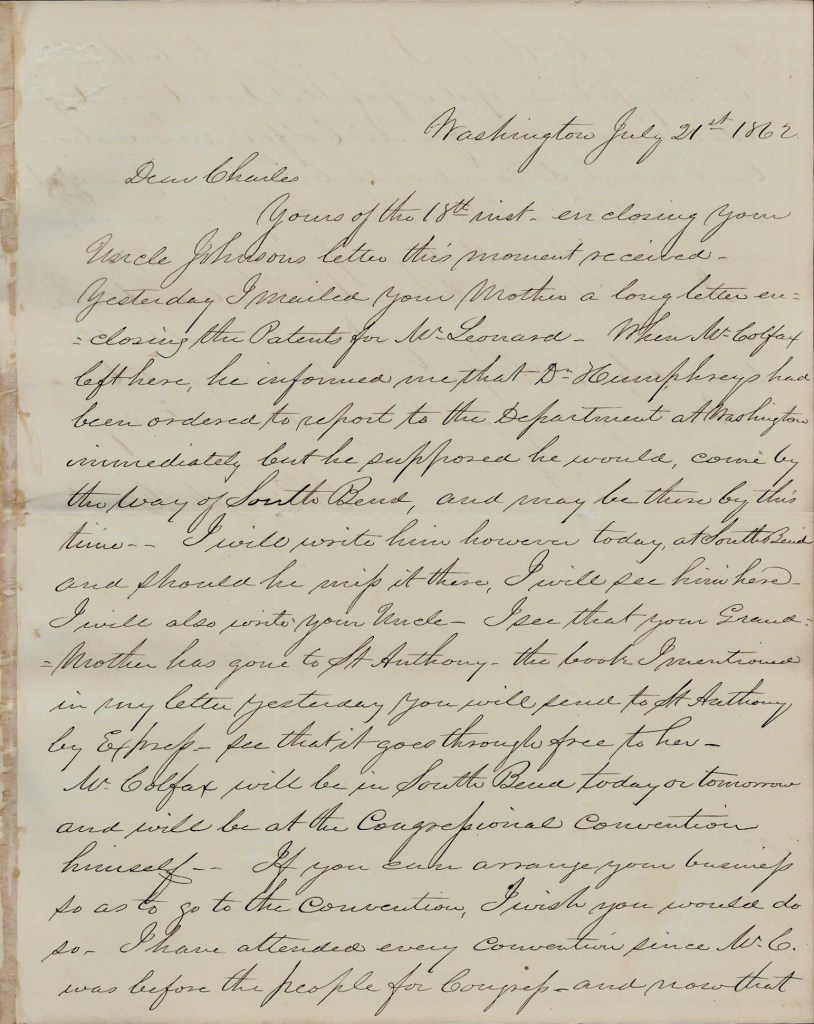 Washington July 21st 1862.
Dear Charles
Yours of the 18th inst - enclosing your
Uncle Johnsons letter this moment received -
Yesterday I mailed your Mother a long letter en=
=closing the Patents for Mr Leonard - When Mr Colfax
left here, he informed me that Dr Humphreys had
been ordered to report to the Department at Washington
immediately but he supposed he would, come by
the way of South Bend, and may be there by this
time -- I will write him however today, at South Bend
and should he miss it there, I will see him here -
I will also write your Uncle - I see that your Grand=
=Mother has gone to St Anthony - the book I mentioned
in my letter yesterday you will send to St Anthony
by Express - see that it goes through free to her -
Mr Colfax will be in South Bend today or tomorrow
and will be at the Congressional Convention
himself -- If you can arrange your business
so as to go to the Convention, I wish you would do
so - I have attended every convention since Mr. C.
was before the people for Congress - and now that